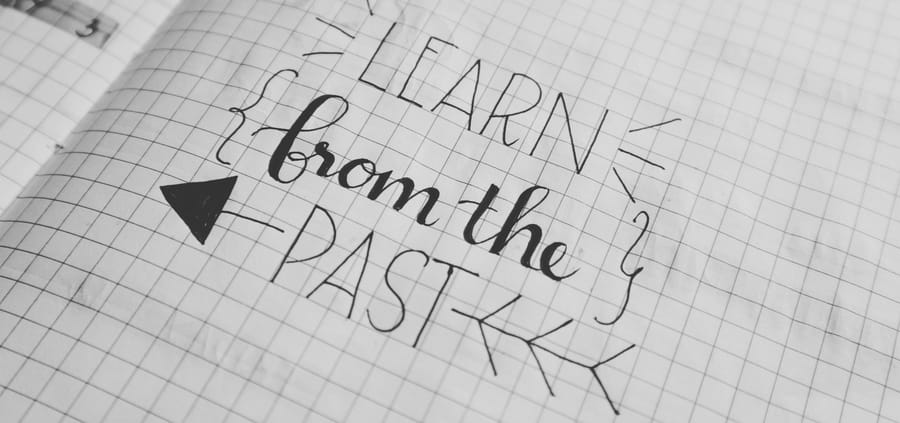 3
LEARN
{ from the }
PAST